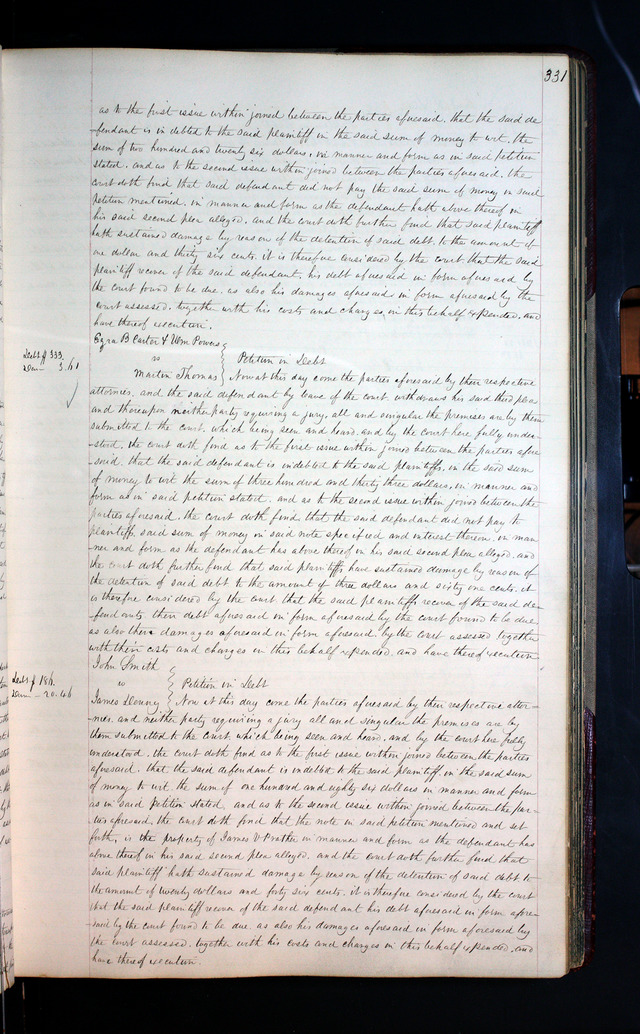 331
as to the first issue within joined between the parties aforesaid. that the said de-
-fendant is in debted to the said plaintiff in the said sum of money to wit, the
sum of two hundred and twenty six dollars, in manner and form as in said petition
stated. and as to the second issue within joined between the parties aforesaid. the
court doth find that said defendant did not pay the said sum of money in said
petition mentioned, in manner and form as the defendant hath above thereof in
his said second plea alleged. and the court doth further find that said plaintiff
hath sustained damage by reason of the detention of said debt, to the amount of
one dollar and thirty six cents. it is therefore considered by the court that the said
plaintiff recover of the said defendant, his debt aforesaid in form aforesaid by
the court found to be due. as also his damages aforesaid in form aforesaid by the
court assessed. together with his costs and charges in this behalf expended. and
have thereof execution.
Ezra B Carter & Wm Powers
vs Petition in Debt
Debt $ 333.
Dam — 3.61
Martin Thomas Now at this day come the parties aforesaid by their respective
attornies. and the said defendant by leave of the court withdraws his said third plea
and thereupon neither party requiring a jury, all and singular the premises are by them
submitted to the court. which being seen and heard. and by the court here fully under-
stood. the court doth find as to the first issue within joined between the parties afore-
-said. that the said defendant is indebted to the said plaintiffs. in the said sum
of money to wit the sum of three hundred and thirty three dollars, in manner and
form as in said petition stated. and as to the second issue within joined between the
parties aforesaid. the court doth find, that the said defendant did not pay to
plaintiffs said sum of money in said note specified and interest thereon. in man-
ner and form as the defendant has above thereof in his said second plea alleged. and
the court doth further find that said plaintiffs have sustained damage by reason of
the detention of said debt to the amount of three dollars and sixty one cents. it
is therefore considered by the court that the said plaintiffs recover of the said de-
-fendants their debt aforesaid in form aforesaid by the court found to be due.
as also their damages aforesaid in form aforesaid. by the court assessed together
with their costs and charges in this behalf expended. and have thereof execution
John Smith
Debt $ 186.
Dam — 20.46
vs Petition in Debt
James Now at this day come the parties aforesaid by their respective attor-
-nies. and neither party requiring a jury all and singular the premises are by
them submitted to the court. which being seen and heard. and by the court here fully
understood. the court doth find as to the first issue within joined between the parties
aforesaid. that the said defendant is indebted to the said plaintiff, in the said sum
of money to wit the sum of one hundred and eighty six dollars in manner and form
as in said Petition stated. and as to the second issue within joined between the par-
-ties aforesaid, the court doth find that the note in said petition mentioned and set
forth, is the property of James V Prather in manner and form as the defendant has
above thereof in his said second plea alleged. and the court doth further find that
said plaintiff hath sustained damage by reason of the detention of said debt to
the amount of twenty dollars and forty six cents. it is therefore considered by the court
that the said plaintiff recover of the said defendant his debt aforesaid in form afore-
said by the court found to be due. as also his damages aforesaid in form aforesaid by
the court assessed. together with his costs and charges in this behalf expended. and
have thereof execution.